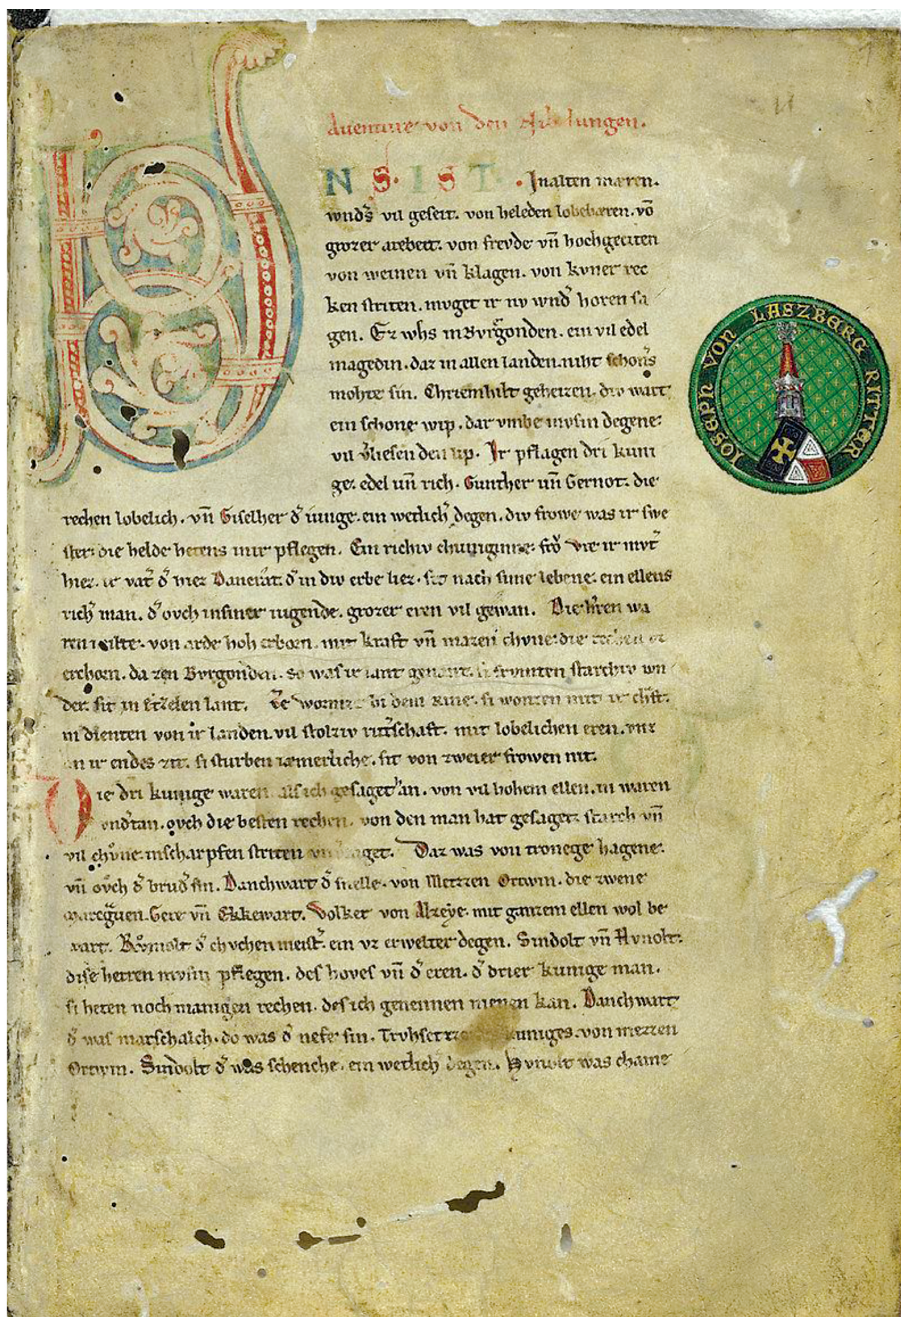 Auenture von den Nibelungen.
VNS. IST. Inalten mæren.
wnd͛s vil geseit. von heleden lobebæren. vō
grozer arebeit. von frevde vn̄ hochgeciten
von weinen vn̄ klagen. von kvner rec
ken striten. mvget ir nv wnd͛ horen sa
gen. Ez whs inBvrgonden. ein vil edel
magedin. daz in allen landen. niht schon͛s
mohte sin. Chriemhilt geheizen. div wart
ein schone wip. dar vmbe mvsin degene.
vil v͛liesen den lip. Ir pflagen dri kuni
ge. edel vn̄ rich. Gunther vn̄ Gernot. die
rechen lobelich. vn̄ Giselher d͛ iunge. ein wetlich͛ degen. div frowe was ir swe
ster. die helde hetens inir pflegen. Ein richiv chuniginne. frŏ Vte ir mvt͛
hiez. ir vat͛ d͛ hiez Dancrat. d͛ in div erbe liez. sit nach sime lebene. ein ellens
rich͛ man. d͛ ovch insiner iugende. grozer eren vil gewan. Die h͛ren wa
ren milte. von arde hoh erborn. mit kraft vn̄ mazen chvne. die rechen
erchorn. da zen Bvrgonden. so was ir lant genant. si frvmten starchiv wn
der. sit in Etzelen lant. Ze wormze bi dem Rine. si wonten mit ir chft.
in dienten von ir landen. vil stolziv ritt͛schaft. mit lobelichen eren. vnz
an ir endes zit. si sturben iæmerliche. sit von zweier frowen nit.
Die dri kunige waren. als ich gesaget han. von vil hohem ellen. in waren
vndertan. ovch die besten rechen. von den man hat gesaget. starch vn̄
vil chvne. inscharpfen striten vnverzaget. Daz was von tronege hagene.
vn̄ ovch d͛ brud͛ sin. Danchwart d͛ snelle. von Metzzen Ortwin. die zwene
maregven. Gere vn̄ Ekkewart. Volker von Alzeye. mit ganzem ellen wol be
wart. Rvmolt d͛ chvchen meist͛. ein vz erwelter degen. Sindolt vn̄ Hvnolt.
dise herren mvsin pflegen. des hoves vn̄ d͛ eren. d͛ drier kunige man.
si heten noch manigen rechen. des ich genennen nienen kan. Danchwart
d͛ was marschalch. do was d͛ nefe sin. Trvhsetze des kuniges. von metzzen
Ortwin. Sindolt d͛ was schenche. ein wetlich degen. Hvnolt was chame
IOSEPH VON LASZBERG RITTER